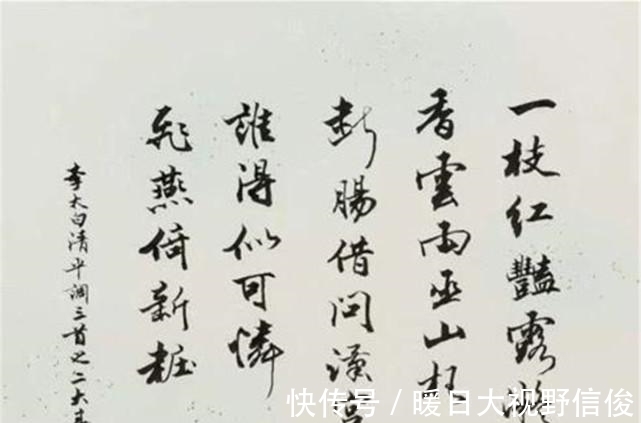 一枝紅豔露凝
香雲雨巫山枉
斷腸借問漢宮
誰得似可憐
飛燕倚新粧
李太白清平調三首之二大
快传号 / 暖日大视野信俊